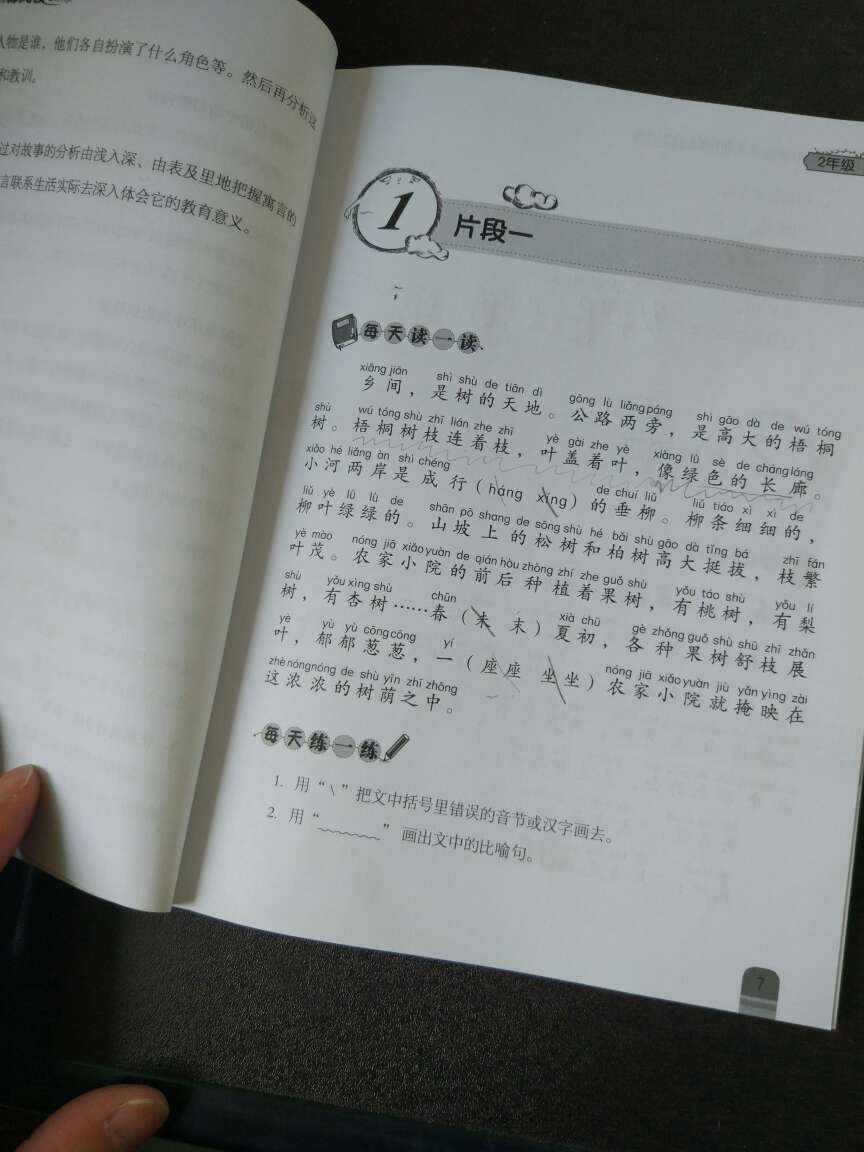 人物是谁，他们各自扮演了什么角色等。然后再分析这
和教训。
过对故事的分析由浅入深、由表及里地把握寓言的
言联系生活实际去深入体会它的教育意义。
2年级
1 片段一
每天读一读
xiāng jiān shì shù de tiān dì gōng lù liǎng páng shì gāo dà de wú tóng
乡间，是树的天地。公路两旁，是高大的梧桐
shù wú tóng shù zhī lián zhe zhī yè gài zhe yè xiàng lǜ sè de cháng láng
树。梧桐树枝连着枝，叶盖着叶，像绿色的长廊。
xiǎo hé liǎng àn shì chéng de chuí liǔ liǔ tiáo xì xì de
小河两岸是成行（háng xíng）的垂柳。柳条细细的，
liǔ yè lǜ lǜ de shān pō shang de sōng shù hé bǎi shù gāo dà tǐng bá zhī fán
柳叶绿绿的。山坡上的松树和柏树高大挺拔，枝繁
yè mào nóng jiā xiǎo yuàn de qián hòu zhòng zhí zhe guǒ shù yǒu táo shù yǒu lí
叶茂。农家小院的前后种植着果树，有桃树，有梨
shù yǒu xìng shù chūn xià chū gè zhǒng guǒ shù shū zhī zhǎn
树，有杏树……春（未 末）夏初，各种果树舒枝展
yè yù yù cōng cōng yí nóng jiā xiǎo yuàn jiù yǎn yìng zài
叶，郁郁葱葱，一（座座 坐坐）农家小院就掩映在
zhè nóng nóng de shù yīn zhī zhōng
这浓浓的树荫之中。
每天练一练
1. 用“\”把文中括号里错误的音节或汉字画去。
2. 用“﹏﹏﹏”画出文中的比喻句。
7